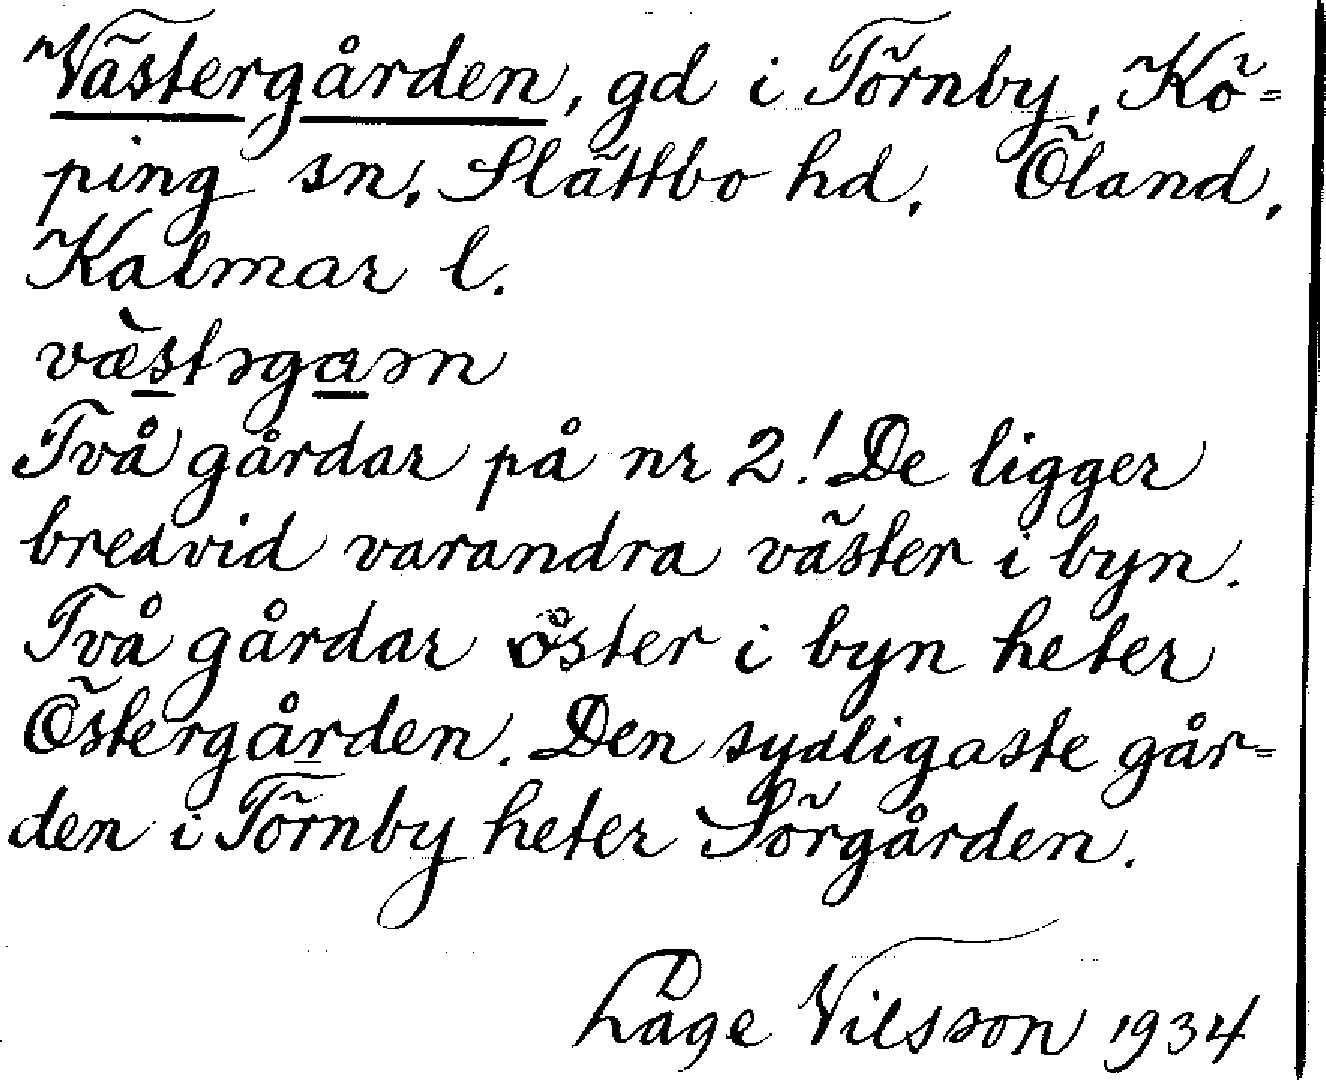 Västergården, gd i Törnby, Kö=
ping sn, Slättbo hd, Öland,
Kalmar l.
væ̀strgaɹn
Två gårdar på nr 2! De ligger
bredvid varandra väster i byn.
Två gårdar öster i byn heter
Östergården. Den sydligaste går=
den i Törnby heter Sörgården.
Låge Nilsson 1934